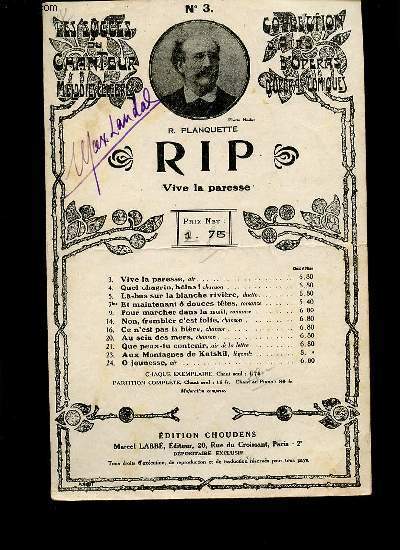 N° 3.
LES SUCCÈS
DU
CHANTEUR
COLLECTION
D'OPÉRAS
Photo Nadar
R. PLANQUETTE
Max Landal
RIP
Vive la paresse
PRIX NET :
1.75
3. Vive la paresse, air 6.80
4. Quel chagrin, hélas ! chanson 5.80
5. Là-bas sur la blanche rivière, duetto 5.80
Et maintenant ô douces têtes, romance 5.40
9. Pour marcher dans la nuit, romance 6.80
14. Non, trembler c'est folie, chanson 6.80
16. Ce n'est pas la bière, chanson 6.80
20. Au sein des mers, chanson 6.80
21. Que peux-tu contenir, air de la lettre 6.80
23. Aux Montagnes de Katskil, légende 8. »
24. O jeunesse, air 6.80
CHAQUE EXEMPLAIRE, Chant seul :
PARTITION COMPLÈTE, Chant seul : Chant et Piano :
Majoration comprise.
ÉDITION CHOUDENS
Marcel LABBÉ, Éditeur, 20, Rue du Croissant, Paris - 2e
DÉPOSITAIRE EXCLUSIF
Tous droits d'exécution, de reproduction et de traduction réservés pour tous pays.